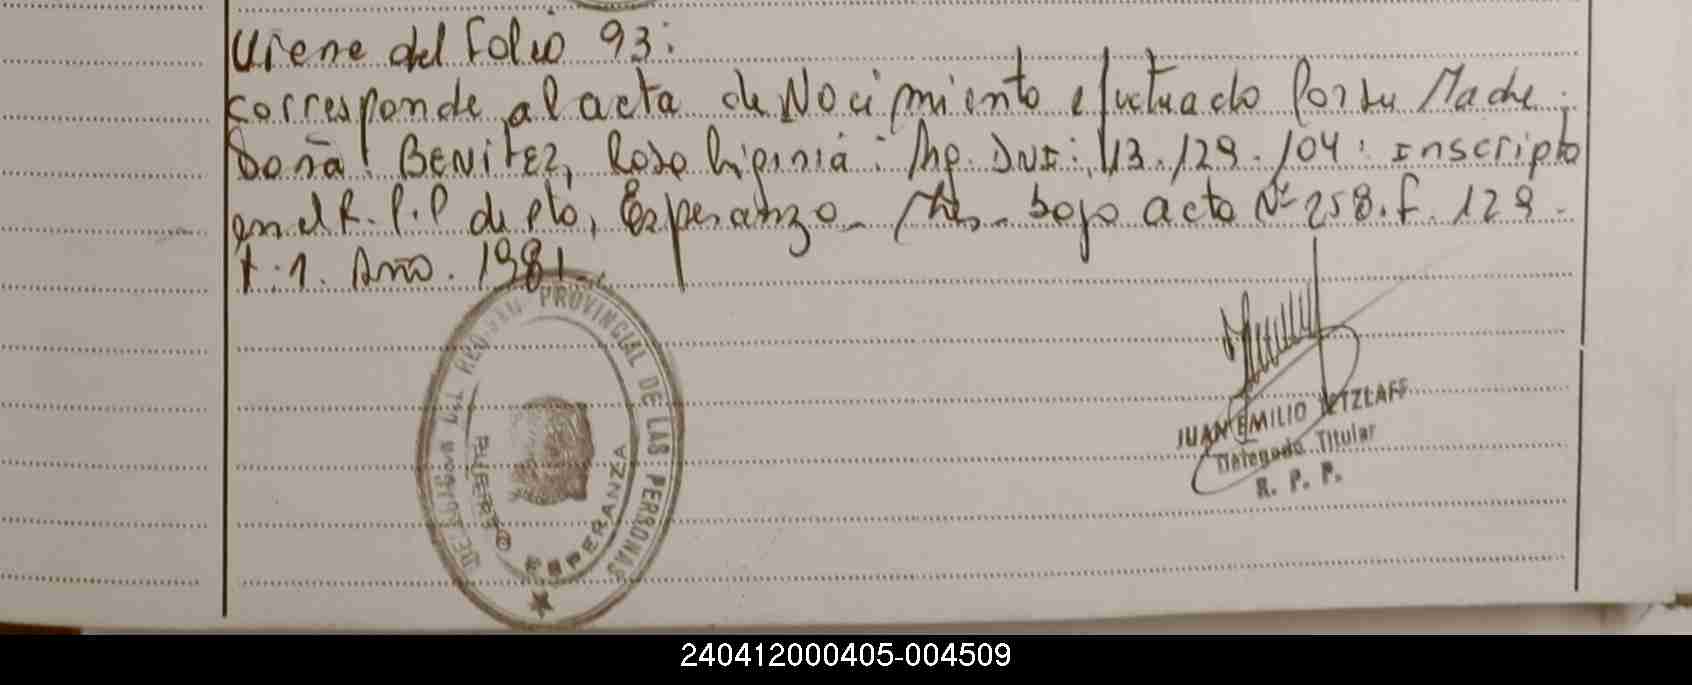 Viene del Folio 93:
corresponde al acta de Nacimiento efectuado Por su Madre:
Doña: BENITEZ, Rosa Higinia: Arg. DNI: 13.129.104: inscripto
en el R.P.P de Pto, Esperanza - Mnes - bajo acta Nº 258. F. 129 -
T: 1. Año. 1981.-
DELEGACION DEL REGISTRO PROVINCIAL DE LAS PERSONAS
PUERTO ESPERANZA
JUAN EMILIO
Delegado Titular
R. P. P.
240412000405-004509